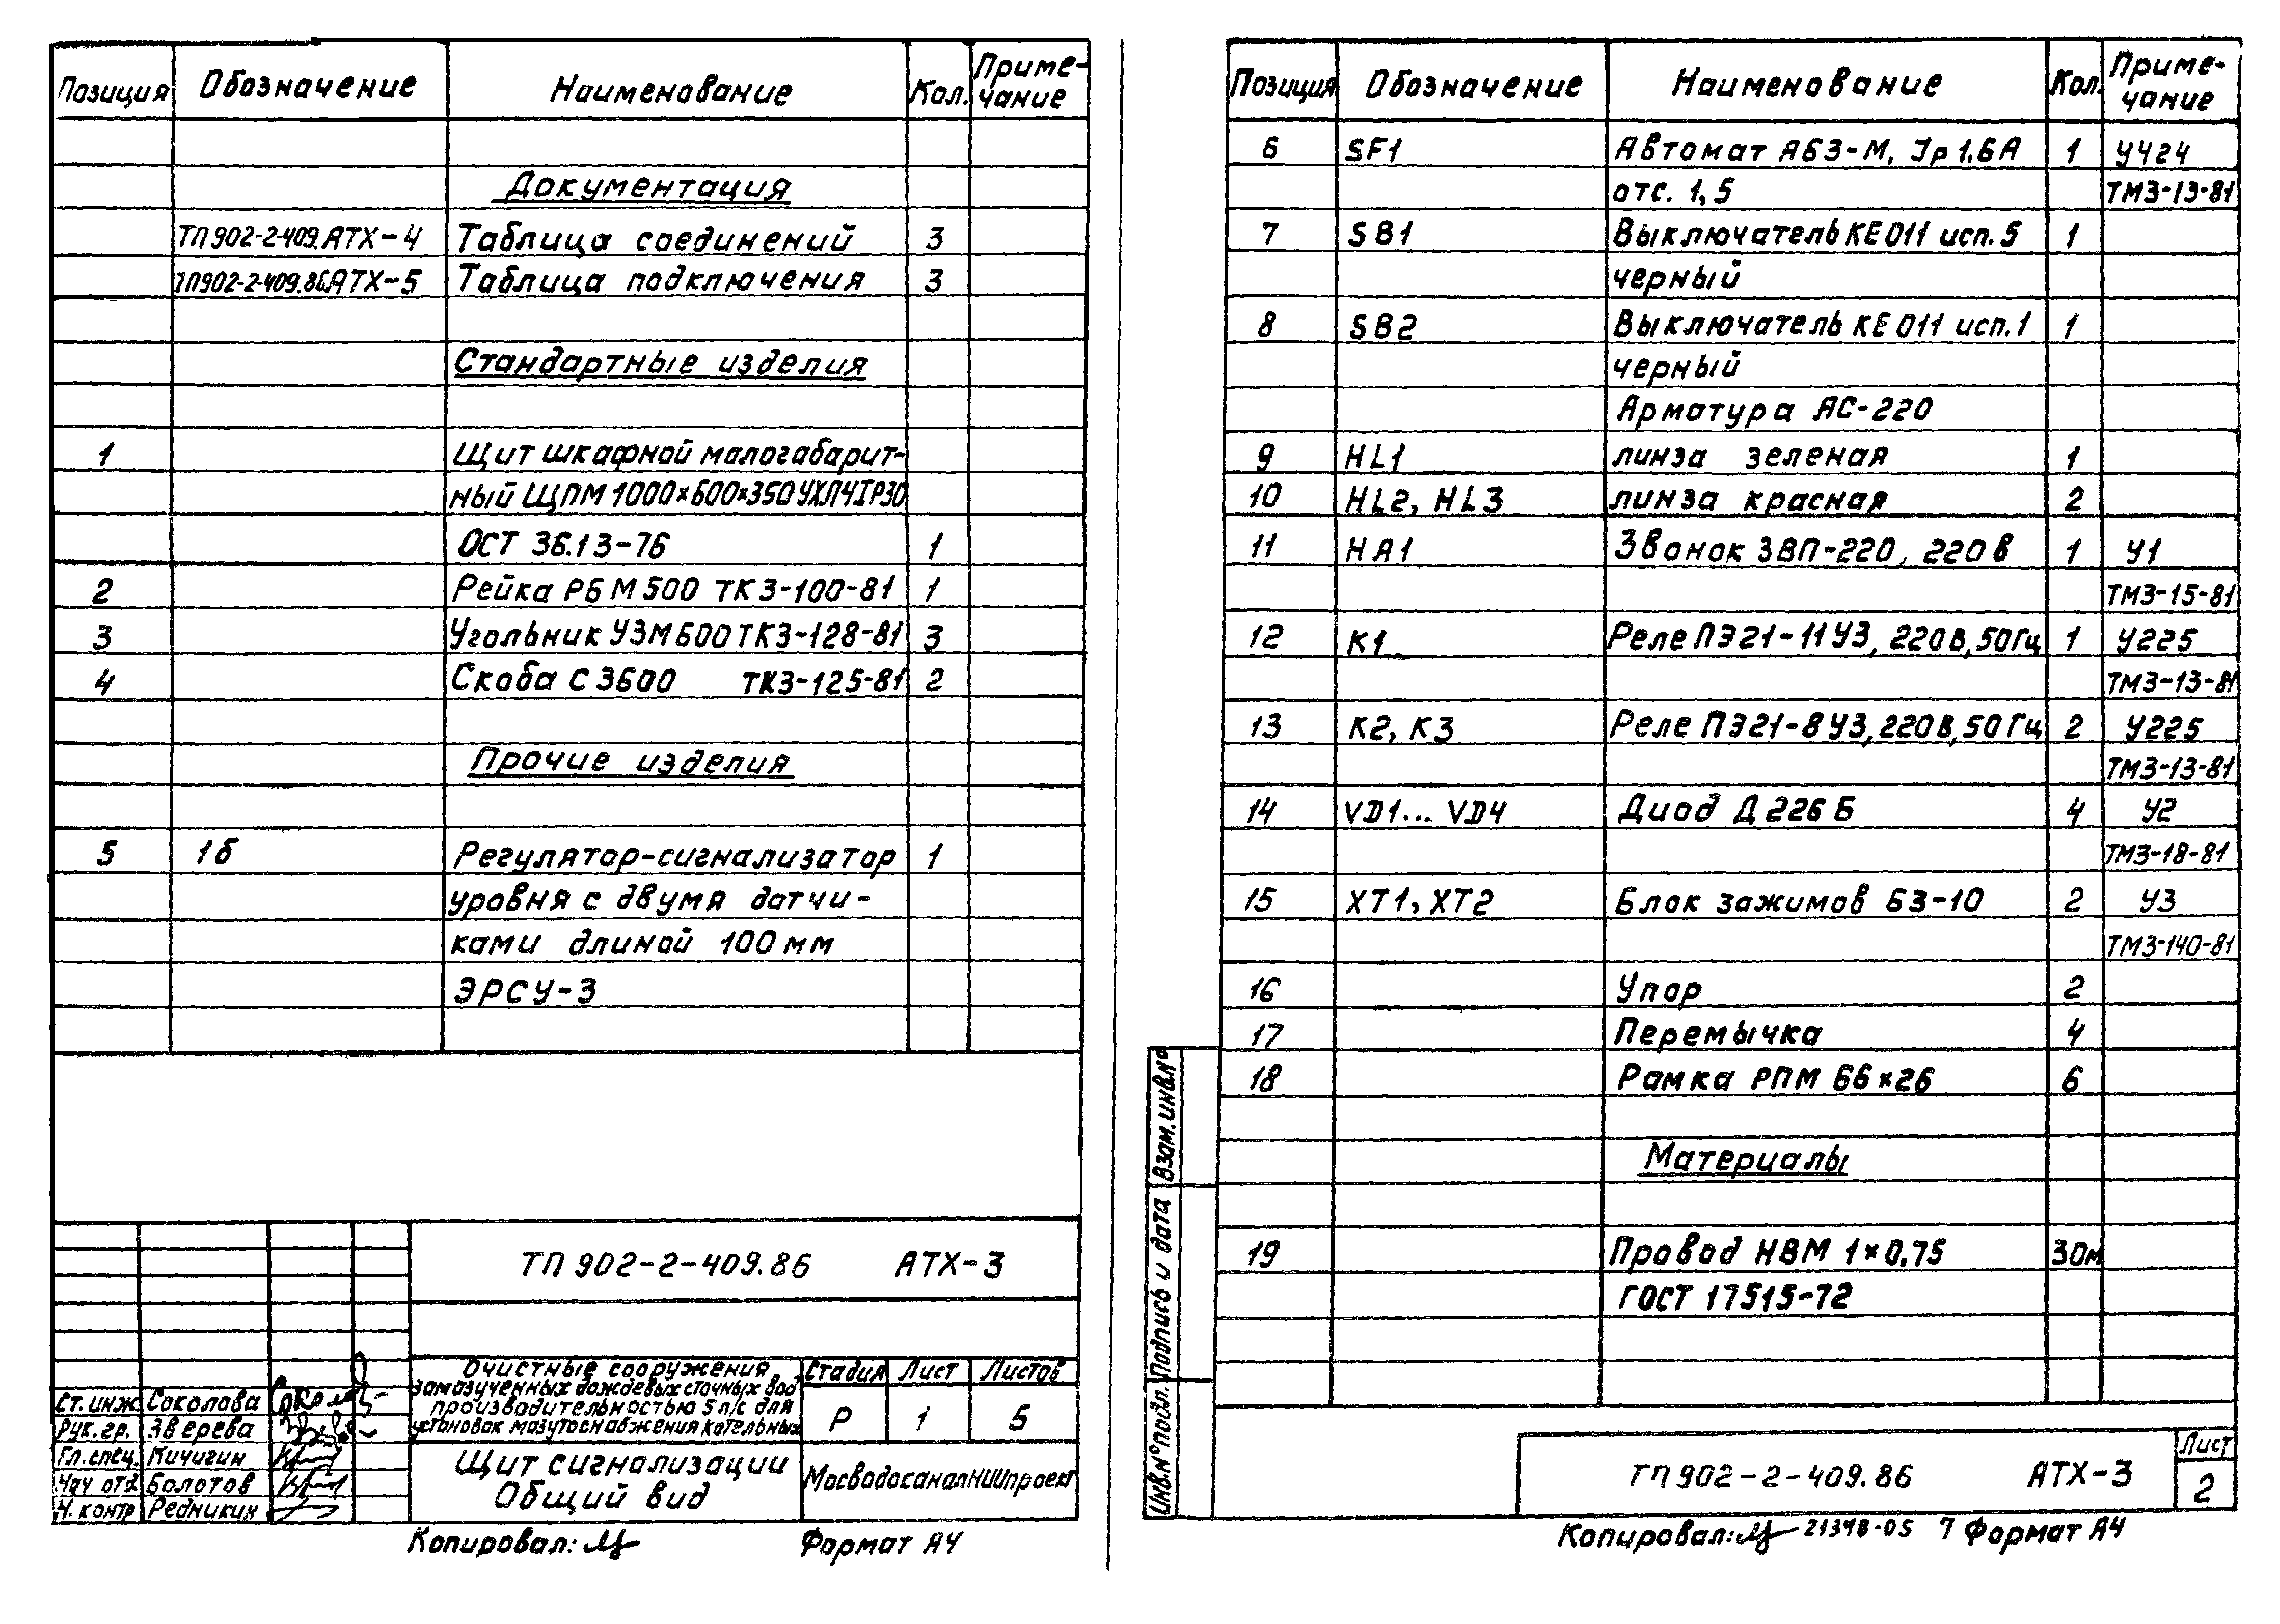 Позиция Обозначение Наименование Кол. Приме-
чание
Документация
ТП902-2-409.АТХ-4 Таблица соединений 3
ТП902-2-409.86.АТХ-5 Таблица подключения 3
Стандартные изделия
1 Щит шкафной малогабарит-
ный ЩПМ 1000×600×350 УХЛ4 IP30
ОСТ 36.13-76 1
2 Рейка РБМ500 ТК3-100-81 1
3 Угольник УЗМ600 ТК3-128-81 3
4 Скоба С3600 ТК3-125-81 2
Прочие изделия
5 1б Регулятор-сигнализатор 1
уровня с двумя датчи-
ками длиной 100 мм
ЭРСУ-3
ТП 902-2-409.86 АТХ-3
Очистные сооружения
замазученных дождевых сточных вод
производительностью 5 л/с для
установок мазутоснабжения котельных
Стадия Лист Листов
Р 1 5
Ст. инж. Соколова
Рук. гр. Зверева
Гл. спец. Кичигин
Нач отд Болотов
Н. контр Редникин
Щит сигнализации
Общий вид
МосводоканалНИИпроект
Копировал: Формат А4
Позиция Обозначение Наименование Кол. Приме-
чание
6 SF1 Автомат А63-М, Iр 1,6А 1 У424
отс. 1,5 ТМ3-13-81
7 SB1 Выключатель КЕ011 исп.5 1
черный
8 SB2 Выключатель КЕ011 исп.1 1
черный
Арматура АС-220
9 HL1 линза зеленая 1
10 HL2, HL3 линза красная 2
11 HA1 Звонок ЗВП-220, 220 в 1 У1
ТМ3-15-81
12 К1 Реле ПЭ21-11 У3, 220В, 50Гц 1 У225
ТМ3-13-81
13 К2, К3 Реле ПЭ21-8 У3, 220В, 50Гц 2 У225
ТМ3-13-81
14 VD1... VD4 Диод Д226Б 4 У2
ТМ3-18-81
15 ХТ1, ХТ2 Блок зажимов БЗ-10 2 У3
ТМ3-140-81
16 Упор 2
17 Перемычка 4
18 Рамка РПМ 66×26 6
Материалы
19 Провод НВМ 1×0,75 30м
ГОСТ 17515-72
Взам. инв.№
Подпись и дата
Инв.№подл.
ТП 902-2-409.86 АТХ-3
Лист
2
Копировал: 21348-05 7 Формат А4